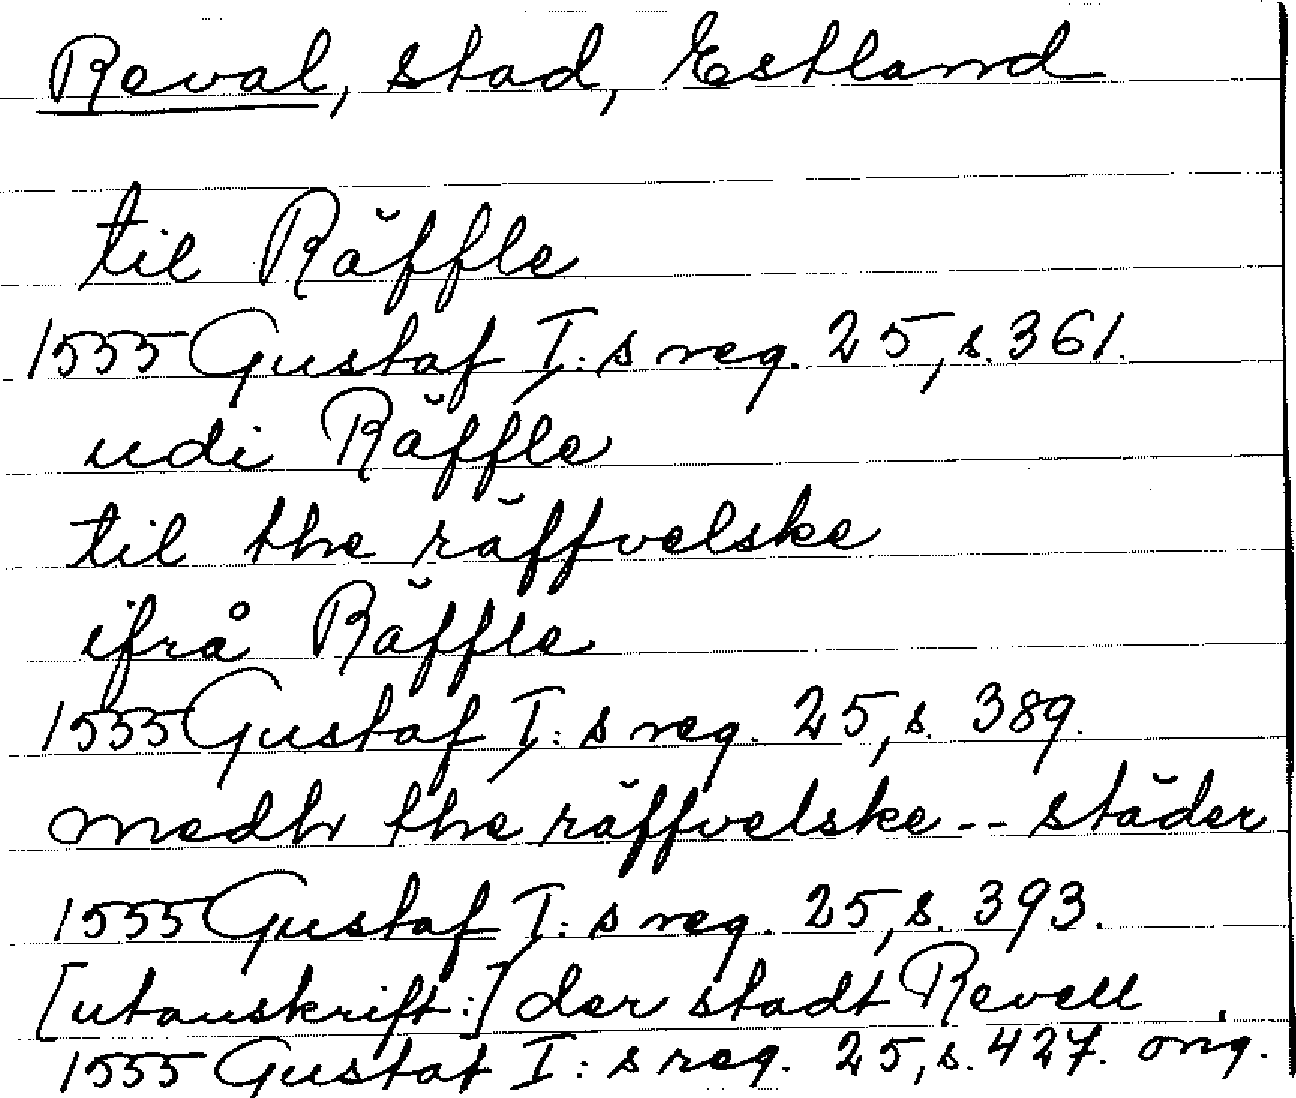 Reval, stad, Estland
til Räffle
1555 Gustaf I:s reg. 25, s. 361.
udi Räffle
til the räffvelske
ifrå Räffle
1555 Gustaf I:s reg. 25, s. 389.
medh the räffvelske -- städer
1555 Gustaf I:s reg. 25, s. 393.
[utanskrift:] der stadt Revell.
1555 Gustaf I:s reg. 25, s. 427. orig.